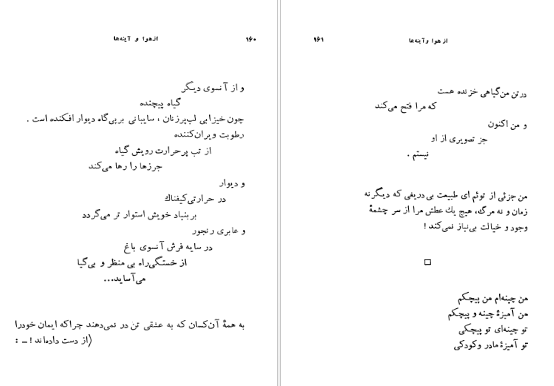 از هوا و آینه‌ها ۱۶۰
و از آنسوی دیگر
گیاه پیچنده
چون خیزابی لب‌پرزنان ، سایبانی بر بی‌گاه دیوار افکنده است .
رطوبت ویران‌کننده
از تب پرحرارت رویش گیاه
جرزها را رها می‌کند
و دیوار
در حرارتی کیفناك
بر بنیاد خویش استوار تر می‌گردد
و عابری رنجور
در سایه فرش آنسوی باغ
از خستگی راه بی منظر و بی‌گیا
می‌آساید...
به همهٔ آن‌کسان که به عشقی تن در نمی‌دهند چرا که ایمان خود را
(از دست داده‌اند ! ... :
از هوا و آینه‌ها ۱۶۱
در تن من گیاهی خزنده هست
که مرا فتح می‌کند
و من اکنون
جز تصویری از او
نیستم .
من جزئی از توئم ای طبیعت بی‌دریغی که دیگر نه
زمان و نه مرگ، هیچ یك عطش مرا از سر چشمهٔ
وجود و خیالت بی‌نیاز نمی‌کند !
من چینه‌ام من پیچکم
من آمیزهٔ چینه و پیچکم
تو چینه‌ای تو پیچکی
تو آمیزهٔ مادر و کودکی